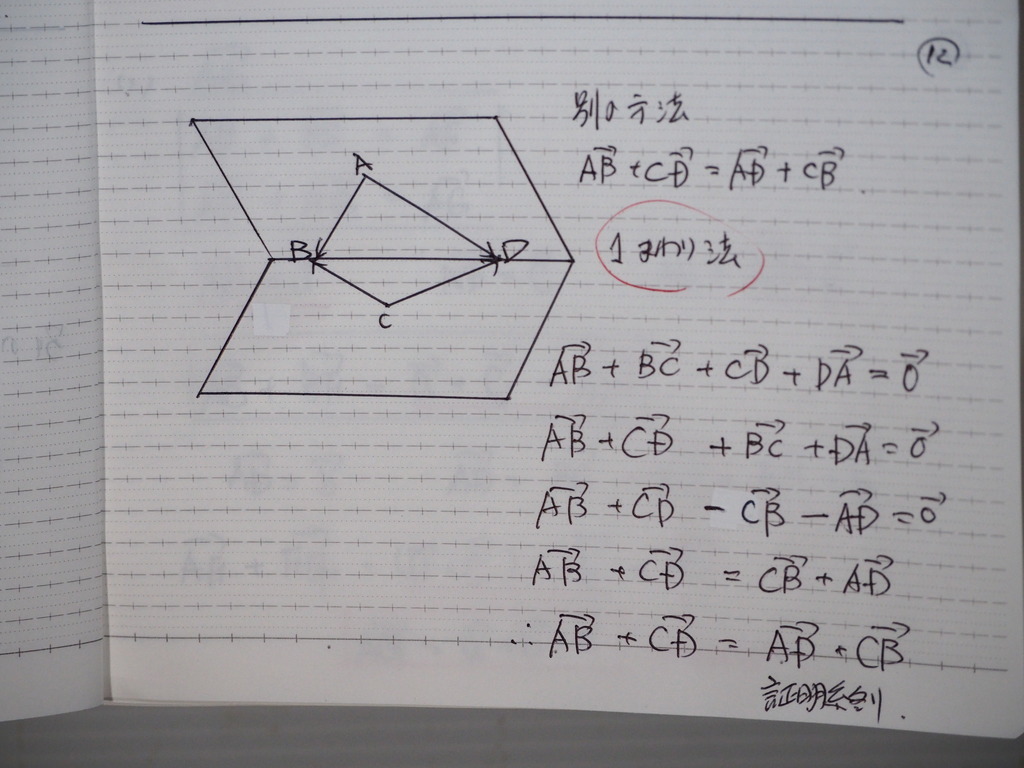 ⑫
別の方法
A
B
D
C
$\overrightarrow{AB} + \overrightarrow{CD} = \overrightarrow{AD} + \overrightarrow{CB}$
1まわり法
$\overrightarrow{AB} + \overrightarrow{BC} + \overrightarrow{CD} + \overrightarrow{DA} = \vec{0}$
$\overrightarrow{AB} + \overrightarrow{CD} + \overrightarrow{BC} + \overrightarrow{DA} = \vec{0}$
$\overrightarrow{AB} + \overrightarrow{CD} - \overrightarrow{CB} - \overrightarrow{AD} = \vec{0}$
$\overrightarrow{AB} + \overrightarrow{CD} = \overrightarrow{CB} + \overrightarrow{AD}$
$\therefore \overrightarrow{AB} + \overrightarrow{CD} = \overrightarrow{AD} + \overrightarrow{CB}$
証明終り.